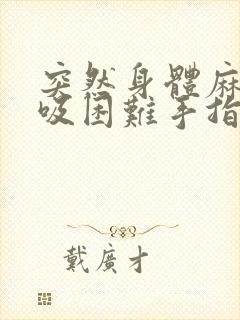 突然身體麻
吸困難手指
戴廣才